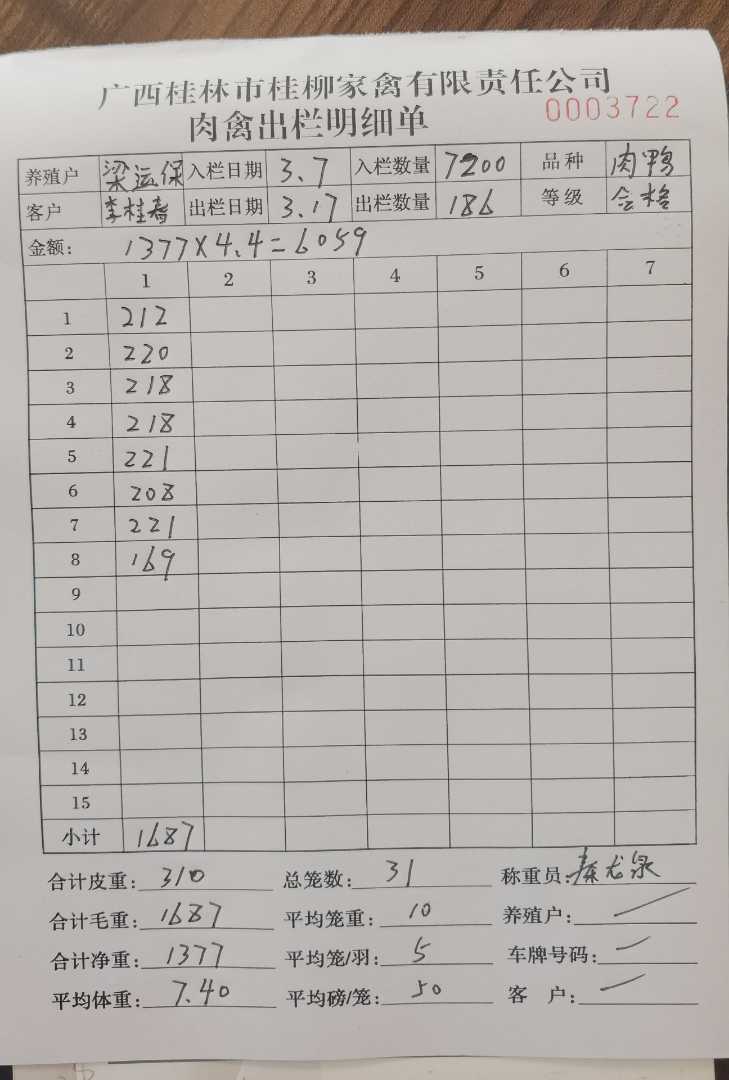 广西桂林市桂柳家禽有限责任公司
肉禽出栏明细单 0003722
养殖户 梁运保 入栏日期 3.7 入栏数量 7200 品种 肉鸭
客户 李桂春 出栏日期 3.17 出栏数量 186 等级 合格
金额: 1377×4.4=6059
1 2 3 4 5 6 7
1 212
2 220
3 218
4 218
5 221
6 208
7 221
8 169
9
10
11
12
13
14
15
小计 1687
合计皮重: 310 总笼数: 31 称重员: 秦龙泉
合计毛重: 1687 平均笼重: 10 养殖户:
合计净重: 1377 平均笼/羽: 5 车牌号码:
平均体重: 7.40 平均磅/笼: 50 客 户: